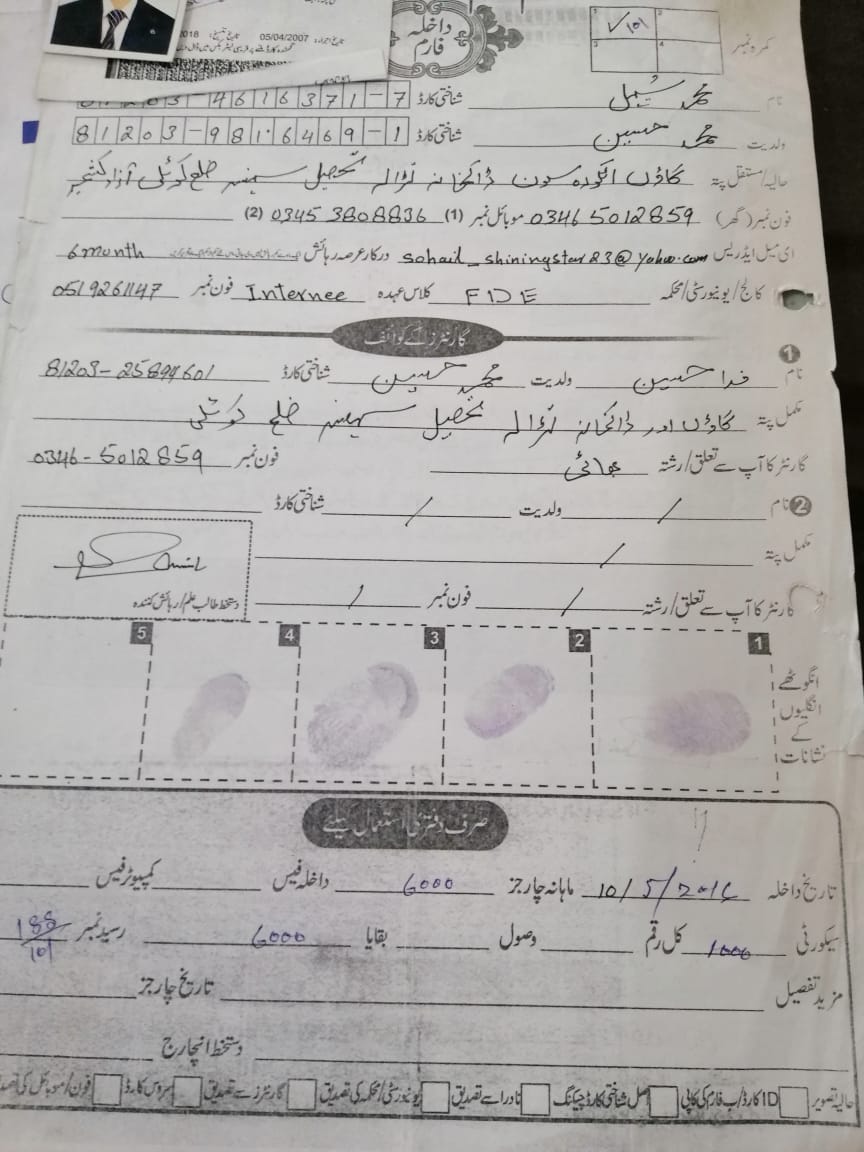 018 تاریخ تنسیخ: 05/04/2007 تاریخ اجراء:
داخلہ فارم
کمرہ نمبر 1 ✓ 101 2 3 4
نام محمد سہیل شناختی کارڈ 4616371-7
ولدیت محمد حسین شناختی کارڈ 81203-9816469-1
حالیہ/مستقل پتہ گاؤں ڈاکخانہ تحصیل سہنسہ ضلع کوٹلی آزاد کشمیر
فون نمبر (گھر) 0346 5012859 موبائل نمبر (1) 0345 3808836 (2)
ای میل ایڈریس sohail_shiningstar23@yahoo.com درکار عرصہ رہائش 6 month
کالج/یونیورسٹی/محکمہ FDE کلاس عہدہ Internee فون نمبر 0519261147
گارنٹرز کے کوائف
1 نام فدا حسین ولدیت محمد حسین شناختی کارڈ
مکمل پتہ گاؤں اور ڈاکخانہ تحصیل سہنسہ ضلع کوٹلی
گارنٹر کا آپ سے تعلق/رشتہ بھائی فون نمبر 0346-5012859
2 نام / ولدیت / شناختی کارڈ
مکمل پتہ /
گارنٹر کا آپ سے تعلق/رشتہ / فون نمبر /
دستخط طالب علم/رہائش کنندہ
1 2 3 4 5
انگوٹھے
انگلیوں
کے
نشانات
صرف دفتری استعمال کیلئے
تاریخ داخلہ 10/5/2016 ماہانہ چارجز 6000 داخلہ فیس کمپیوٹر فیس
سیکورٹی 1000 کل رقم وصول بقایا 6000 رسید نمبر 188/101
مزید تفصیل تاریخ چارجز
دستخط انچارج
حالیہ تصویر ID کارڈ/ب فارم کی کاپی اصل شناختی کارڈ چیکنگ نادرا سے تصدیق یونیورسٹی/محکمہ کی تصدیق گارنٹرز سے تصدیق سروس کارڈ فون/موبائل کی